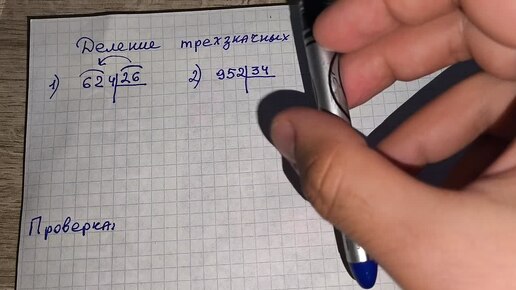 Деление трехзначных
1) 624 26 2) 952 34
Проверка: